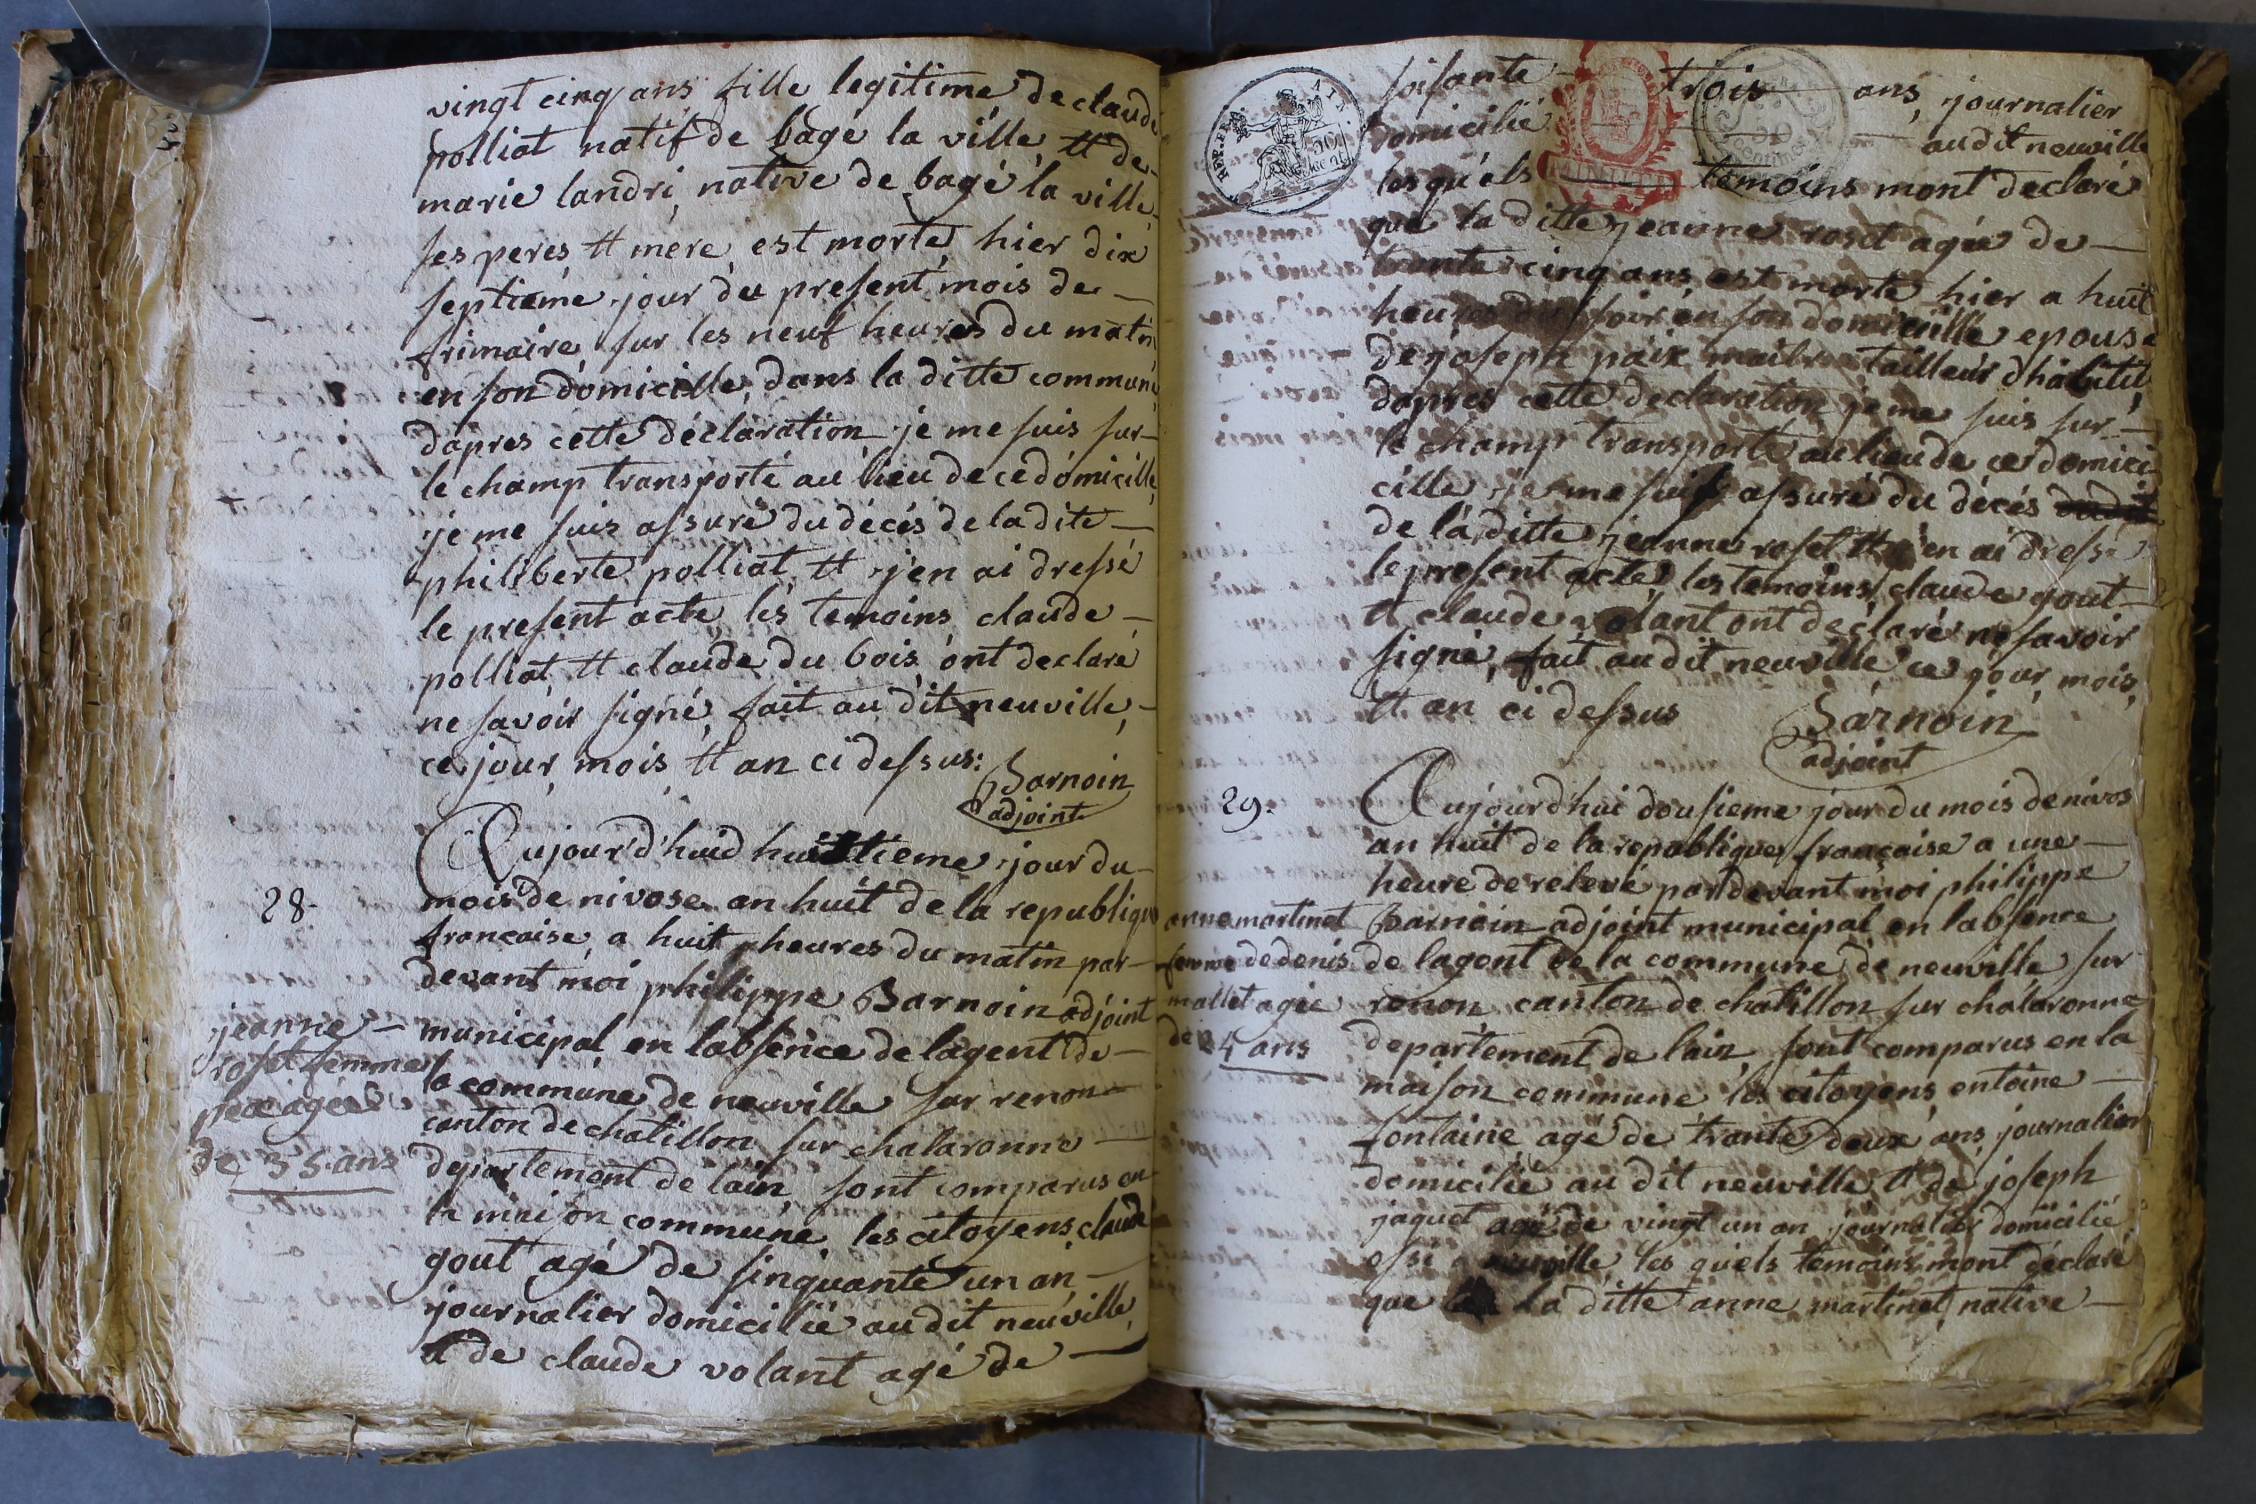 vingt cinq ans fille legitime de claude
polliat natif de bagé la ville et de
marie landri native de bagé la ville
ses peres et mere est morte hier dix
septieme jour du present mois de
frimaire sur les neuf heures du matin
en son domicille dans la ditte commune
dapres cette déclaration je me suis sur
le champ transporté au lieu de ce domicille
je me suis assuré du décés de la dite
philiberte polliat et j'en ai dressé
le present acte les temoins claude
polliat et claude du bois ont declaré
ne savoir signé fait au dit neuville
ce jour mois et an ci dessus:
Barnoin
adjoint
28.
Aujourd'huid huittieme jour du
mois de nivose an huit de la republique
francaise a huit heures du matin par
devant moi philippe Barnoin adjoint
municipal en labsence de lagent de
la commune de neuville sur renon
canton de chatillon sur chalaronne
departement de lain sont comparus en
la maison commune les citoyens claude
gout agé de sinquante un an
journalier domicilié audit neuville
et de claude volant agé de
jeanne
roset femme
peix agée
de 35 ans
soisante trois ans journalier
domicilié audit neuville
lesquels temoins mont declaré
que la ditte jeanne roset agée de
trante cinq ans est morte hier a huit
heures du soir en son domicille epouse
de joseph paix maitre tailleur dhabit
dapres cette declaration je me suis sur
le champ transporté au lieu de ce domici
cille je me suis assuré du décés
de la ditte jeanne roset et j'en ai dressé
le present acte les temoins claude gout
et claude volant ont declaré ne savoir
signé, fait audit neuville ce jour mois
et an ci dessus
Barnoin
adjoint
29.
Aujourd'hui dousieme jour du mois de nivos
an huit de la republique francaise a une
heure de relevé par devant moi philippe
Barnoin adjoint municipal en labsence
de lagent de la commune de neuville sur
renon canton de chatillon sur chalaronne
departement de lain sont comparus en la
maison commune les citoyens entoine
fontaine agé de trante deux ans journalier
domicilié au dit neuville et de joseph
jaquet agé de vingt un an journalier domicilié
ossi a neuville les quels temoins mont declaré
que la ditte anne martinet native
anne martinet
femme de denis
mallet agée
de 24 ans